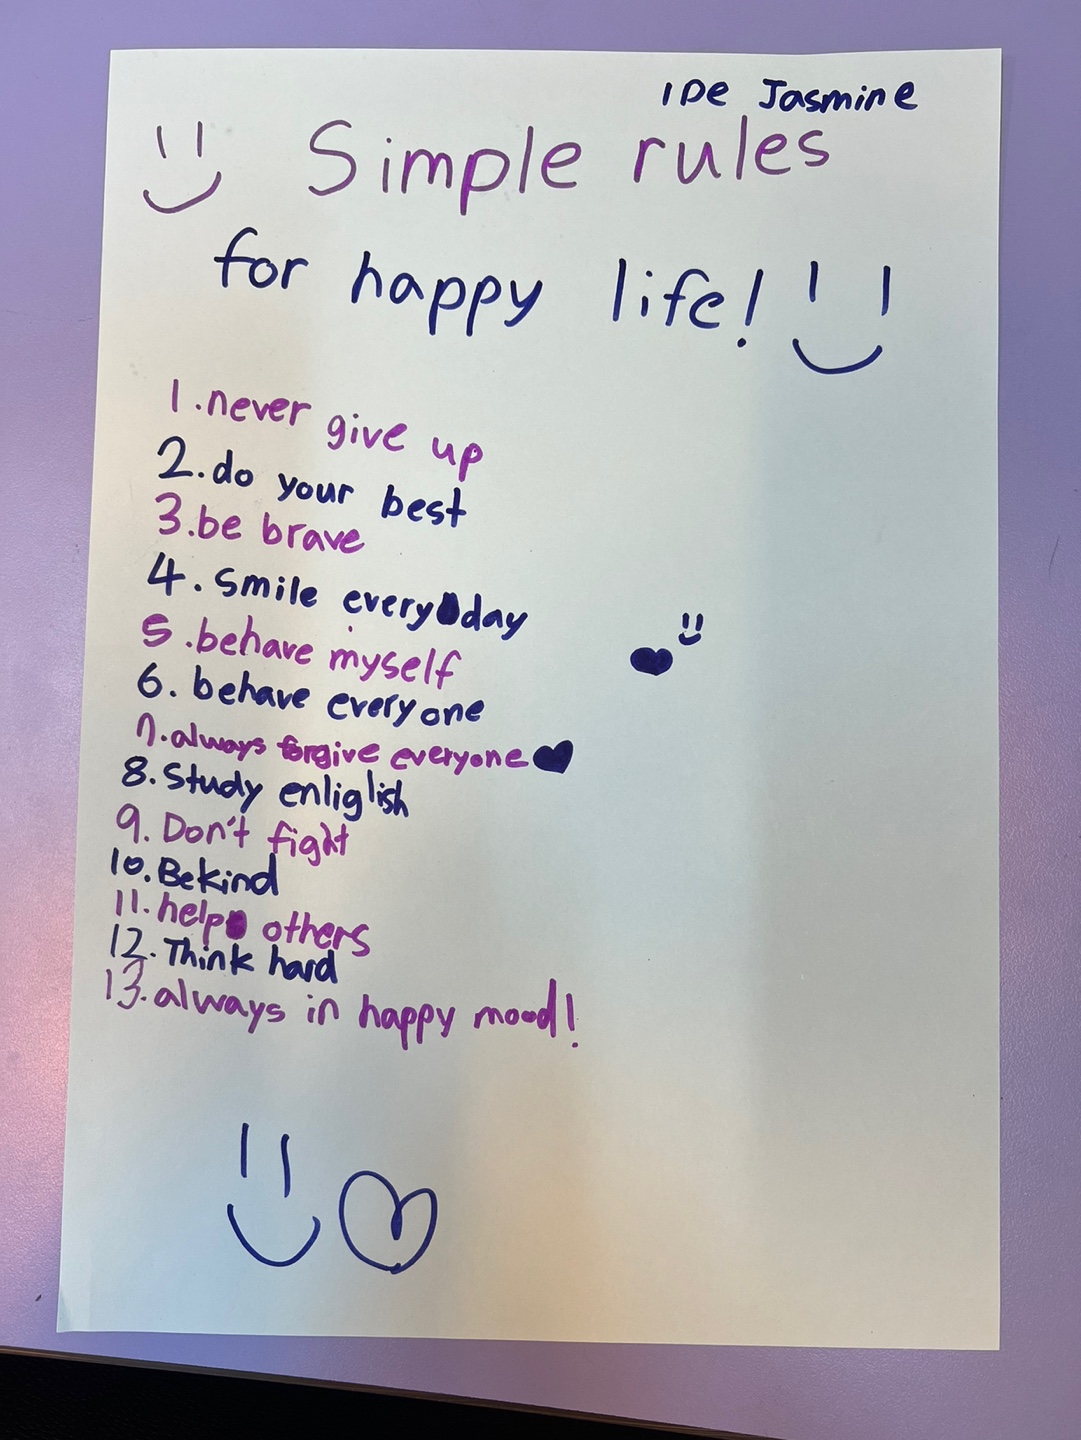 1De Jasmine
Simple rules
for happy life!
1.never give up
2.do your best
3.be brave
4.smile everyday
5.behave myself
6.behave everyone
7.always forgive everyone
8.Study enliglish
9.Don't fight
10.Be kind
11.help others
12.Think hard
13.always in happy mood!